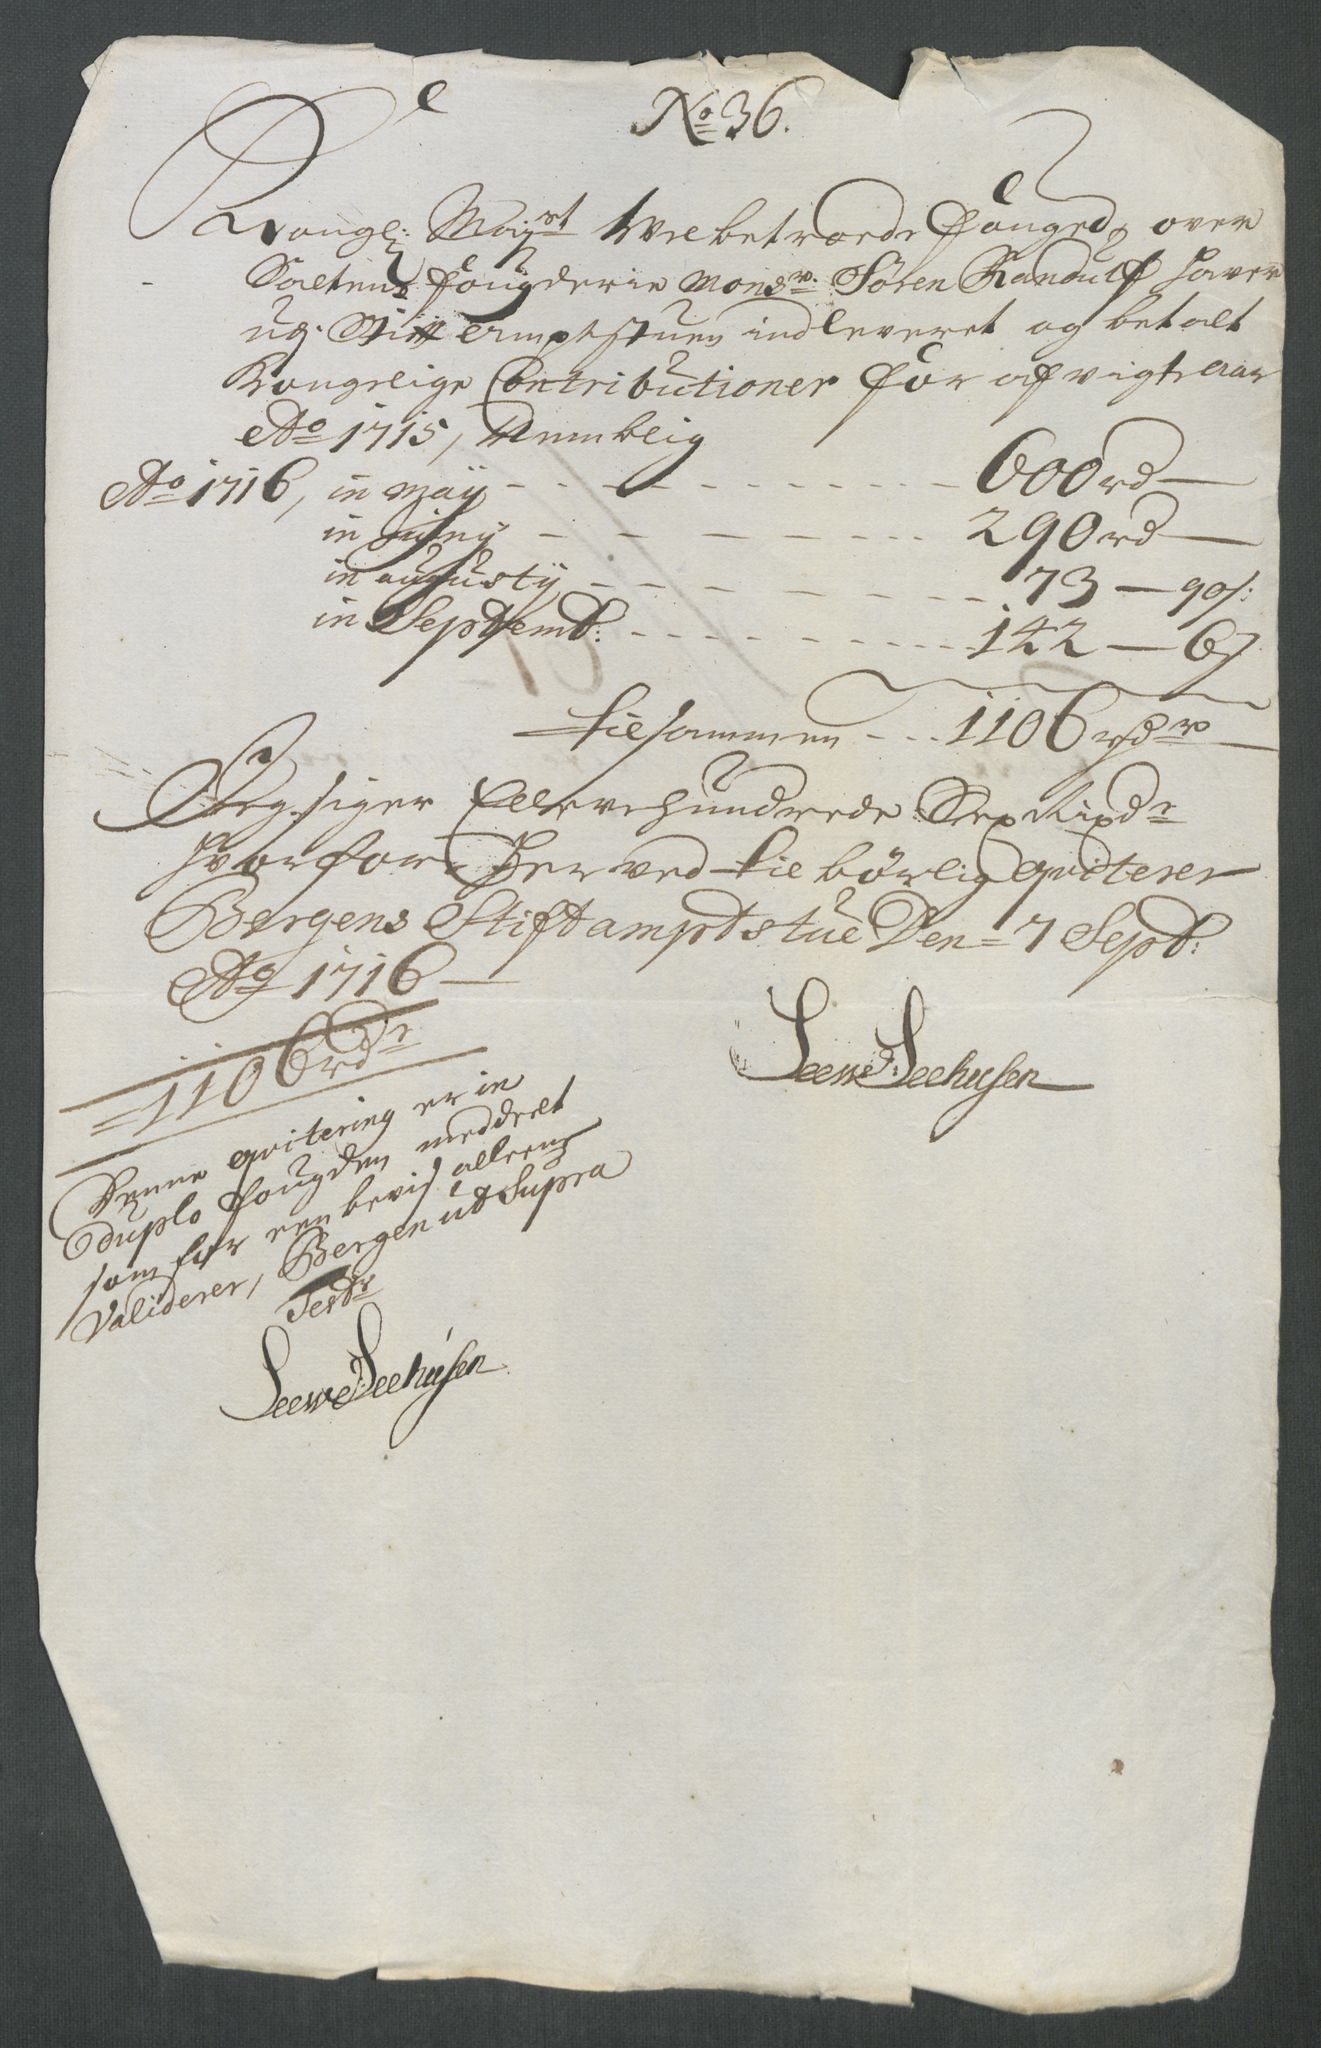 No 36.
Kongl: Mayst Welbetroede Fouged, over
Saltens Fougderie Monsr. Sören Randulf haver
udj Stift Amptstuen indleveret og betalt
Kongelige Contributioner for afvigte aar
Ao 1715, Nemblig
Ao 1716, in Maÿ - - - - - - - 600 rd —
in Junÿ - - - - - - 290 rd —
in augustÿ - - - - - - 73 — 90 s:
in Septemb: - - - - - - 142 — 6 s
tilsammen - - - 1106 rdr —
Jeg siger Ellevehundrede Sex Rixdr
hvorfor Herved tilbörlig qviterer
Bergens Stiftamptstue Den 7 Septb:
Ao 1716 —
Leewe Seehusen
= 1106 rdr
Denne qvitering er in
duplo Fougden meddeelt
som for een bevis alleene
Validerer, Bergen ut Supra
Test
Leewe Seehusen